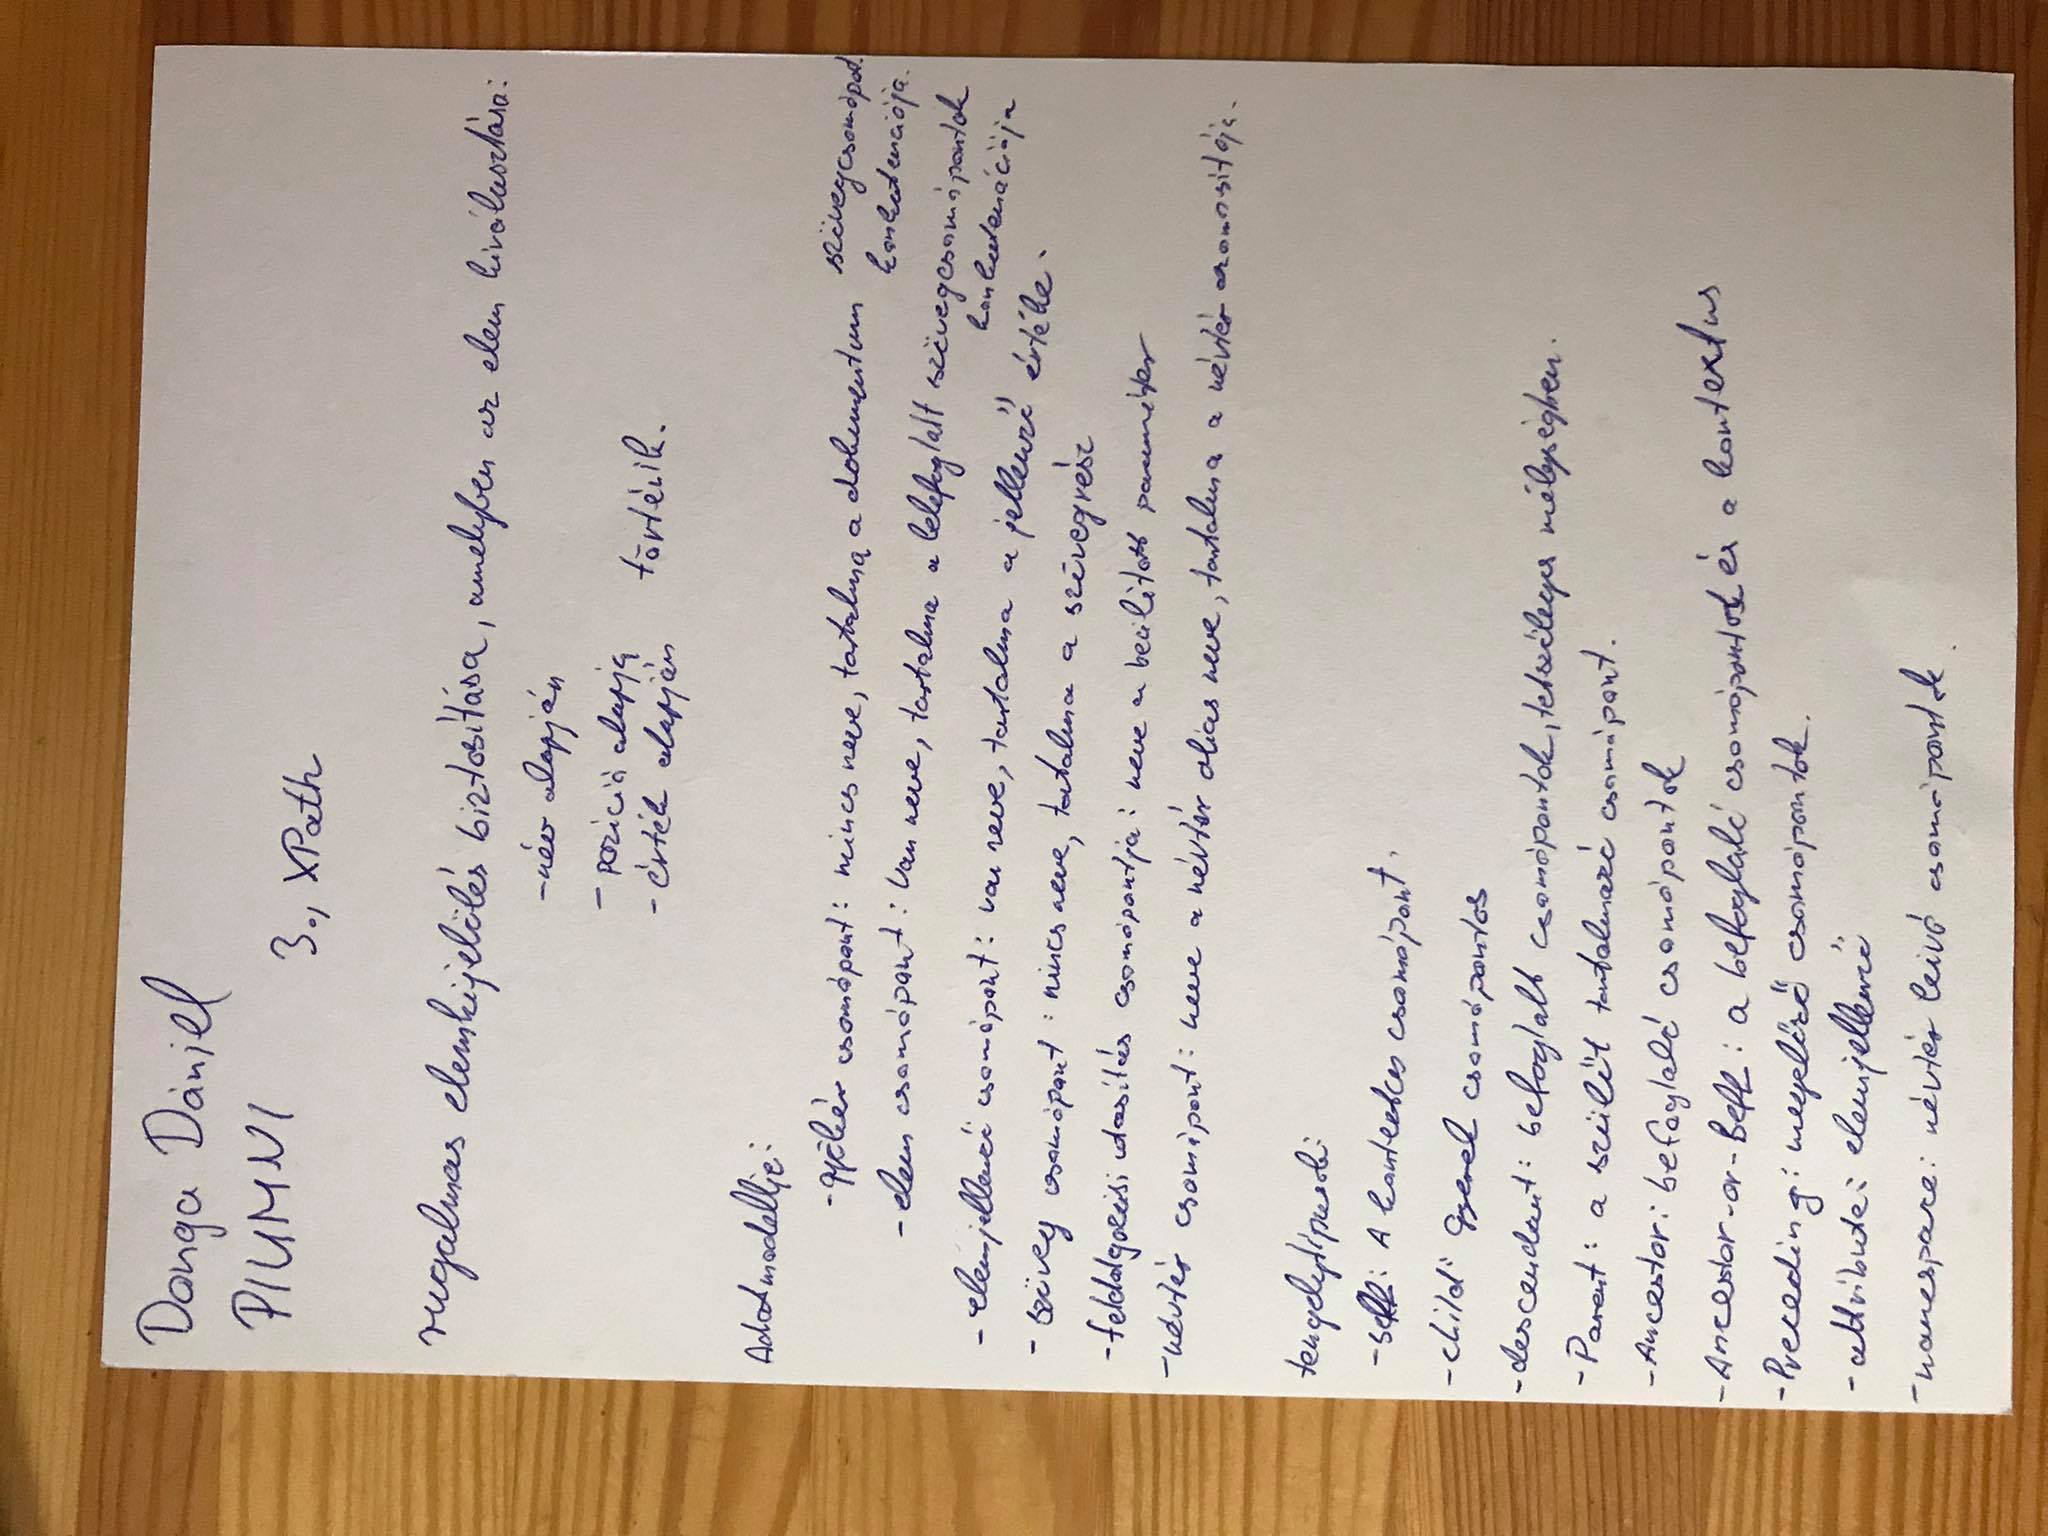 Donga Dániel
PIUMNI
3., XPath
rugalmas elemkijelölés biztosítása, amelyben az elem kiválasztása:
-név alapján
- pozició alapja
- érték alapján történik.
Adatmodellje:
-gyökér csomópont: nincs neve, tartalma a dokumentum szövegcsomópont.
konkatenciója.
- elem csomópont: van neve, tartalma a belefoglalt szövegcsomópontok
konkatenációja
- elemjellemző csomópont: van neve, tartalma a jellemző értéke.
- szöveg csomópont: nincs neve, tartalma a szövegrész
- feldolgozási utasítás csomópontja: neve a beállított paraméter
-névtér csomópont: neve a névtér alias neve, tartalma a névtér azonosítója.
tengelytípusok:
-self: A kontextus csomópont.
-child: Gyerek csomópontos
-descendant: befoglalt csomópontok, tetszőleges mélységben.
- Parent: a szülőt tartalmazó csomópont.
- Ancestor: befoglaló csomópontok
- Ancestor-or-Self: a befoglaló csomópontok és a kontextus
- Preceding: megelőző csomópontok.
- attribute: elemjellemző
- namespace: névtér leíró csomópontok